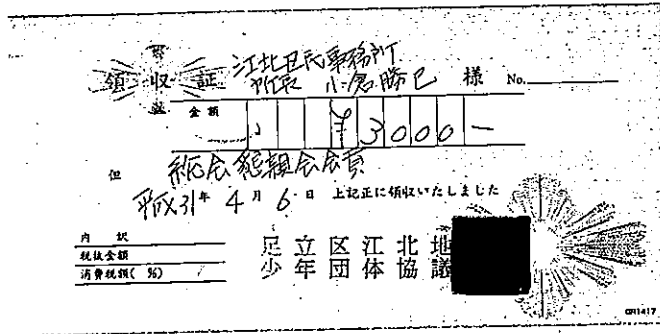 江北区民事務所
領収証 所長 小倉勝巳 様 No.
金額 ¥3000-
但 総会懇親会会費
平成31年 4月 6日 上記正に領収いたしました
内訳
税抜金額
消費税額( %)
足立区江北地
少年団体協議
GR1417